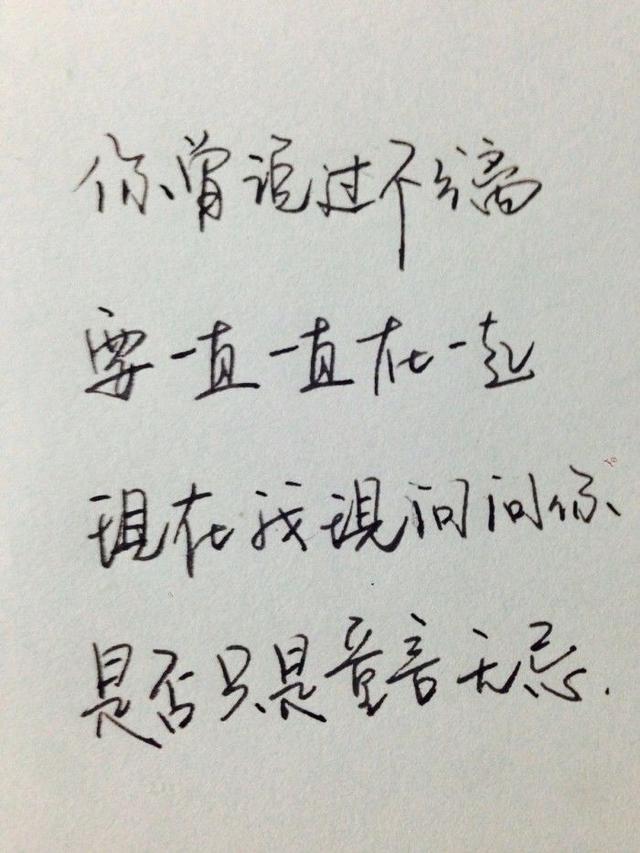 你曾说过不分离
要一直一直在一起
现在我现问问你
是否只是童言无忌.